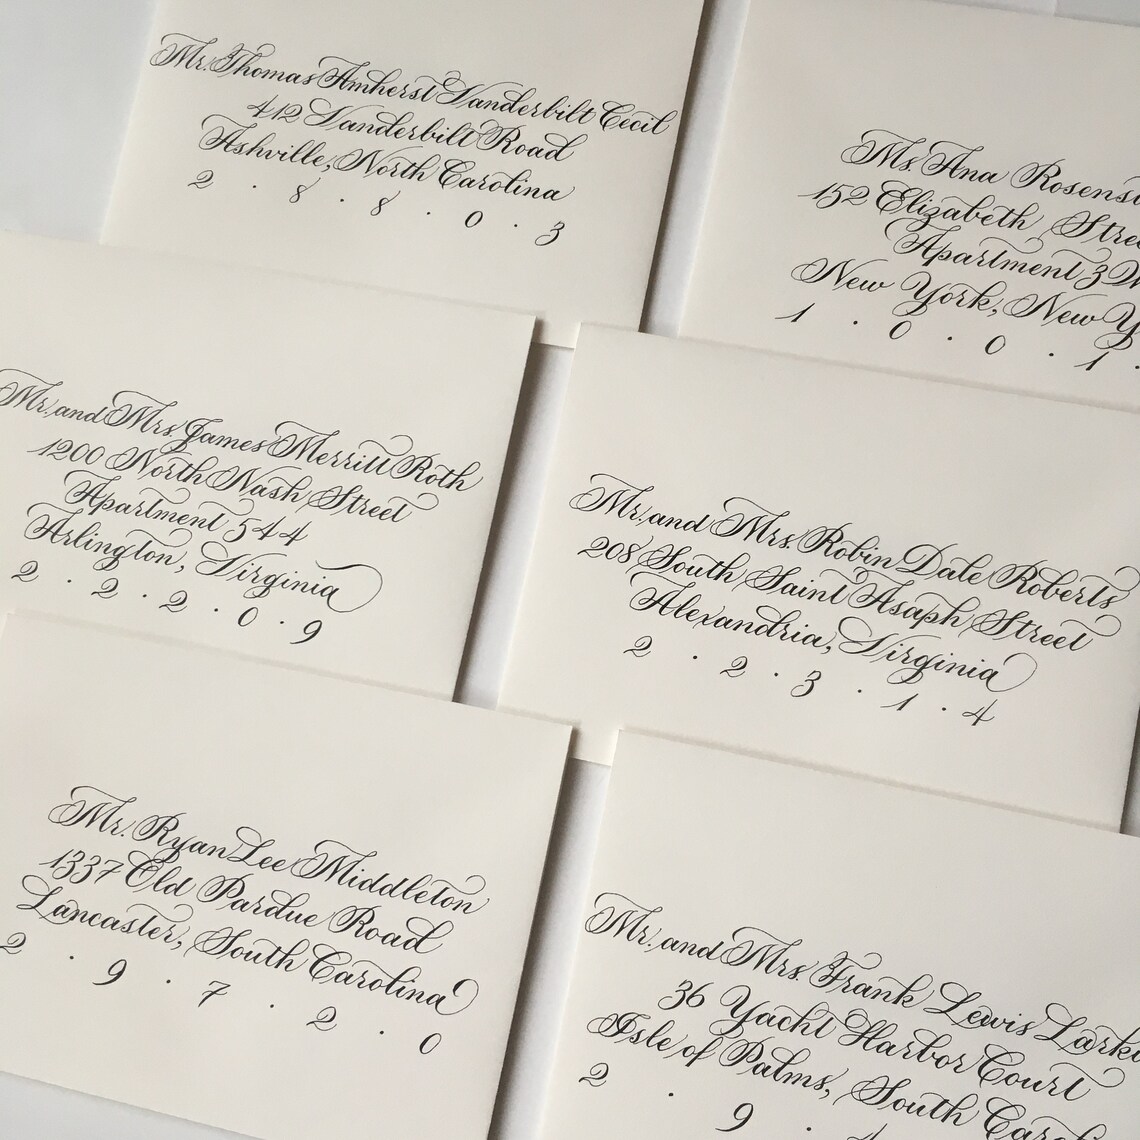 Mr. Thomas Amherst Vanderbilt Cecil
412 Vanderbilt Road
Ashville, North Carolina
2 · 8 · 8 · 0 · 3
Ms. Ana
152 Elizabeth
Apartment
New York, New
1 · 0 · 0 · 1 ·
Mr. and Mrs. James Merritt Roth
1200 North Nash Street
Apartment 544
Arlington, Virginia
2 · 2 · 2 · 0 · 9
Mr. and Mrs. Robin Dale Roberts
208 South Saint Asaph Street
Alexandria, Virginia
2 · 2 · 3 · 1 · 4
Mr. Ryan Lee Middleton
1337 Old Pardue Road
Lancaster, South Carolina
2 · 9 · 7 · 2 · 0
Mr. and Mrs. Frank Lewis
36 Yacht Harbor Court
Isle of Palms, South
2 · 9 ·